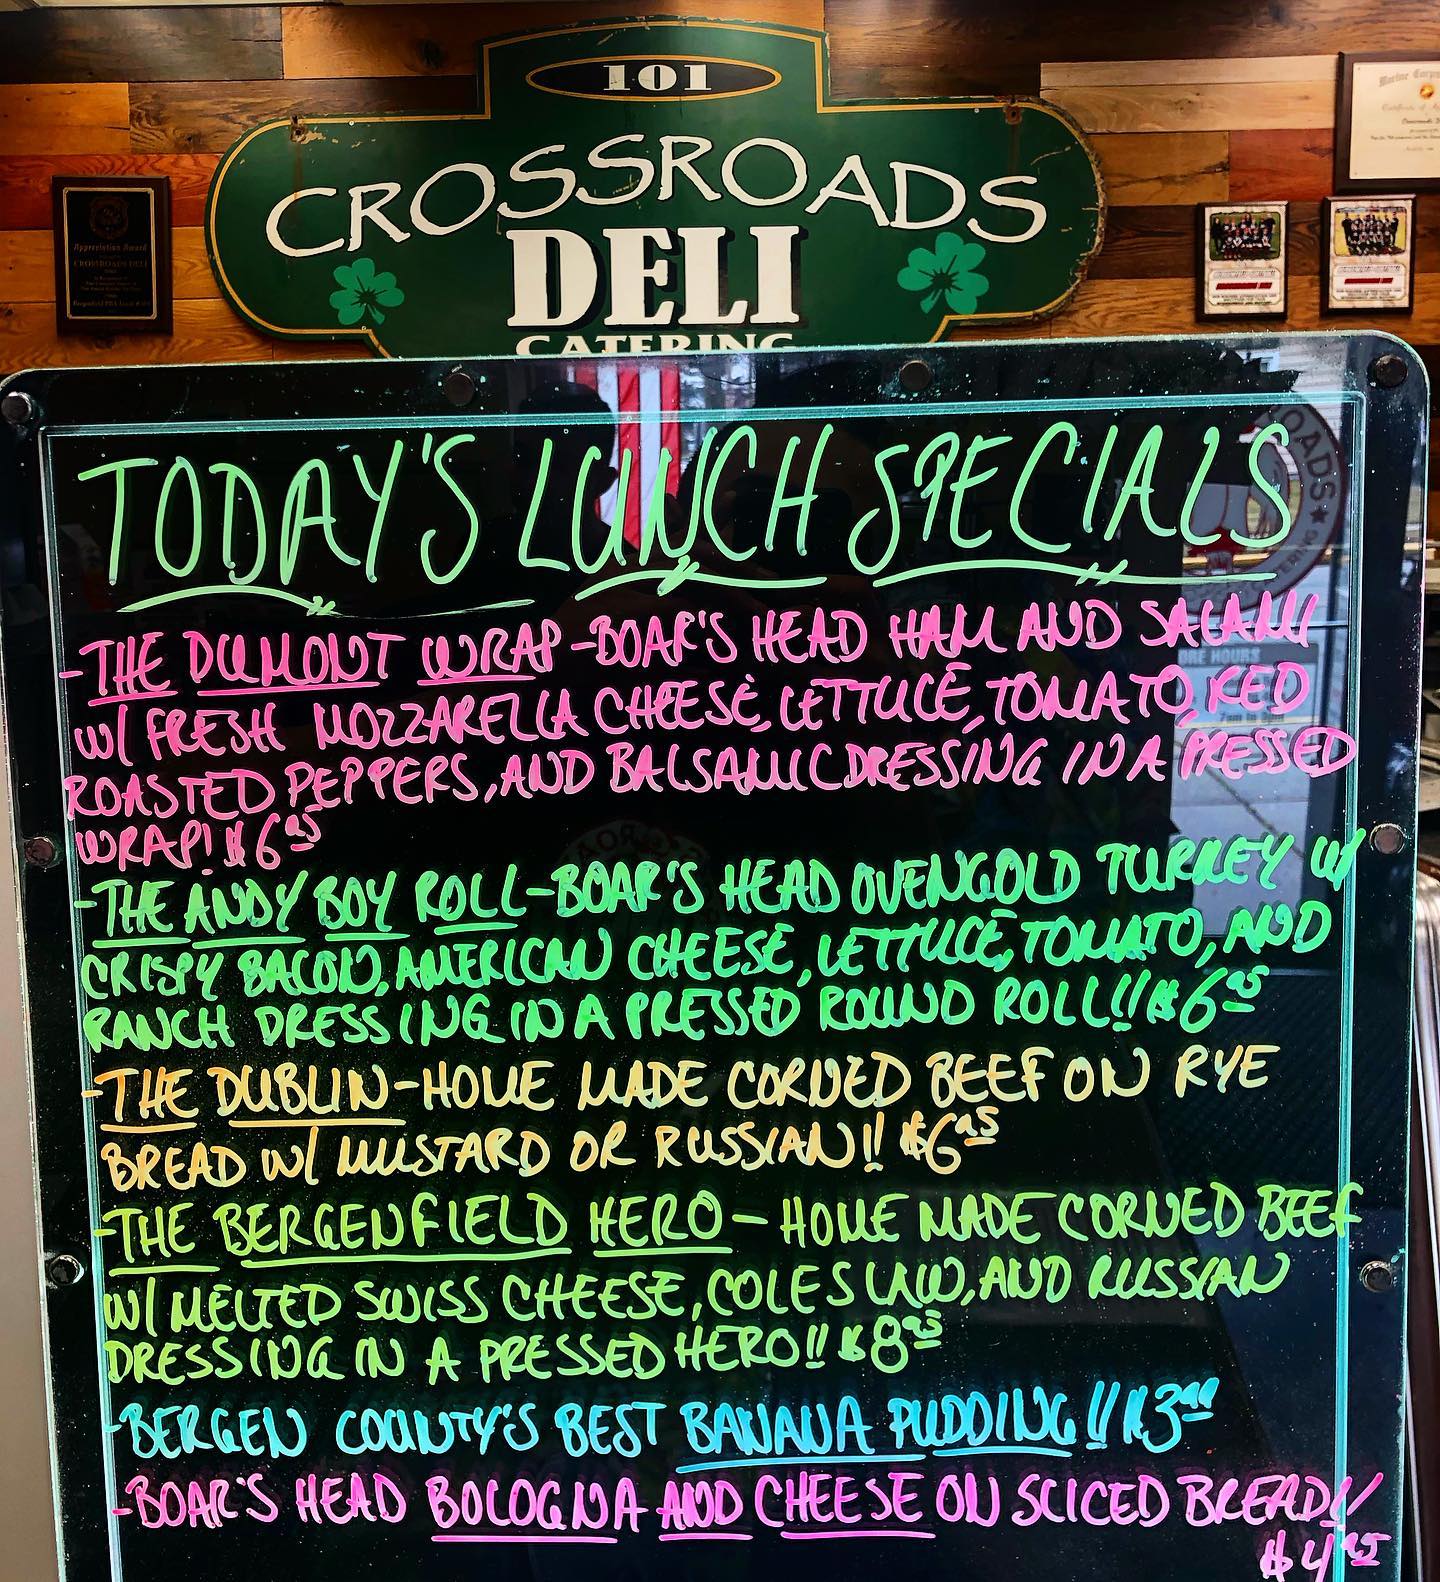 101
CROSSROADS
DELI
CATERING
Appreciation Award
CROSSROADS DELI
TODAY'S LUNCH SPECIALS
-THE DUMONT WRAP-BOAR'S HEAD HAM AND SALAMI
W/ FRESH MOZZARELLA CHEESE, LETTUCE, TOMATO, RED
ROASTED PEPPERS, AND BALSAMIC DRESSING IN A PRESSED
WRAP! $6.95
-THE ANDY BOY ROLL-BOAR'S HEAD OVENGOLD TURKEY W/
CRISPY BACON, AMERICAN CHEESE, LETTUCE, TOMATO, AND
RANCH DRESSING IN A PRESSED ROUND ROLL!! $6.95
-THE DUBLIN-HOME MADE CORNED BEEF ON RYE
BREAD W/ MUSTARD OR RUSSIAN!! $6.95
-THE BERGENFIELD HERO- HOME MADE CORNED BEEF
W/ MELTED SWISS CHEESE, COLESLAW, AND RUSSIAN
DRESSING IN A PRESSED HERO!! $8.95
-BERGEN COUNTY'S BEST BANANA PUDDING!!
-BOAR'S HEAD BOLOGNA AND CHEESE ON SLICED BREAD!!
$4.95